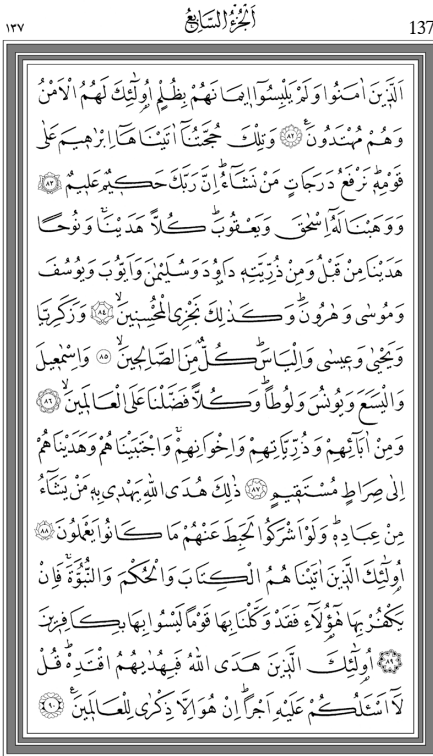 ١٣٧ اَلْجُزْءُ السَّابِعُ 137
اَلَّذ۪ينَ اٰمَنُوا وَلَمْ يَلْبِسُٓوا ا۪يمَانَهُمْ بِظُلْمٍ اُو۬لٰٓئِكَ لَهُمُ الْاَمْنُ
وَهُمْ مُهْتَدُونَ۟ ﴿٨٢﴾ وَتِلْكَ حُجَّتُنَٓا اٰتَيْنَاهَٓا اِبْرٰه۪يمَ عَلٰى
قَوْمِه۪ۜ نَرْفَعُ دَرَجَاتٍ مَنْ نَشَٓاءُۜ اِنَّ رَبَّكَ حَك۪يمٌ عَل۪يمٌ ﴿٨٣﴾
وَوَهَبْنَا لَهُٓ اِسْحٰقَ وَيَعْقُوبَۜ كُلًّا هَدَيْنَاۚ وَنُوحًا
هَدَيْنَا مِنْ قَبْلُ وَمِنْ ذُرِّيَّتِه۪ دَاوُ۫دَ وَسُلَيْمٰنَ وَاَيُّوبَ وَيُوسُفَ
وَمُوسٰى وَهٰرُونَۜ وَكَذٰلِكَ نَجْزِي الْمُحْسِن۪ينَۙ ﴿٨٤﴾ وَزَكَرِيَّا
وَيَحْيٰى وَع۪يسٰى وَاِلْيَاسَۜ كُلٌّ مِنَ الصَّالِح۪ينَۙ ﴿٨٥﴾ وَاِسْمٰع۪يلَ
وَالْيَسَعَ وَيُونُسَ وَلُوطًاۜ وَكُلًّا فَضَّلْنَا عَلَى الْعَالَم۪ينَۙ ﴿٨٦﴾
وَمِنْ اٰبَٓائِهِمْ وَذُرِّيَّاتِهِمْ وَاِخْوَانِهِمْۚ وَاجْتَبَيْنَاهُمْ وَهَدَيْنَاهُمْ
اِلٰى صِرَاطٍ مُسْتَق۪يمٍ ﴿٨٧﴾ ذٰلِكَ هُدَى اللّٰهِ يَهْد۪ي بِه۪ مَنْ يَشَٓاءُ
مِنْ عِبَادِه۪ۜ وَلَوْ اَشْرَكُوا لَحَبِطَ عَنْهُمْ مَا كَانُوا يَعْمَلُونَ ﴿٨٨﴾
اُو۬لٰٓئِكَ الَّذ۪ينَ اٰتَيْنَاهُمُ الْكِتَابَ وَالْحُكْمَ وَالنُّبُوَّةَۚ فَاِنْ
يَكْفُرْ بِهَا هٰٓؤُ۬لَٓاءِ فَقَدْ وَكَّلْنَا بِهَا قَوْمًا لَيْسُوا بِهَا بِكَافِر۪ينَ
﴿٨٩﴾ اُو۬لٰٓئِكَ الَّذ۪ينَ هَدَى اللّٰهُ فَبِهُدٰيهُمُ اقْتَدِهْۜ قُلْ
لَٓا اَسْـَٔلُكُمْ عَلَيْهِ اَجْرًاۜ اِنْ هُوَ اِلَّا ذِكْرٰى لِلْعَالَم۪ينَ۟ ﴿٩٠﴾